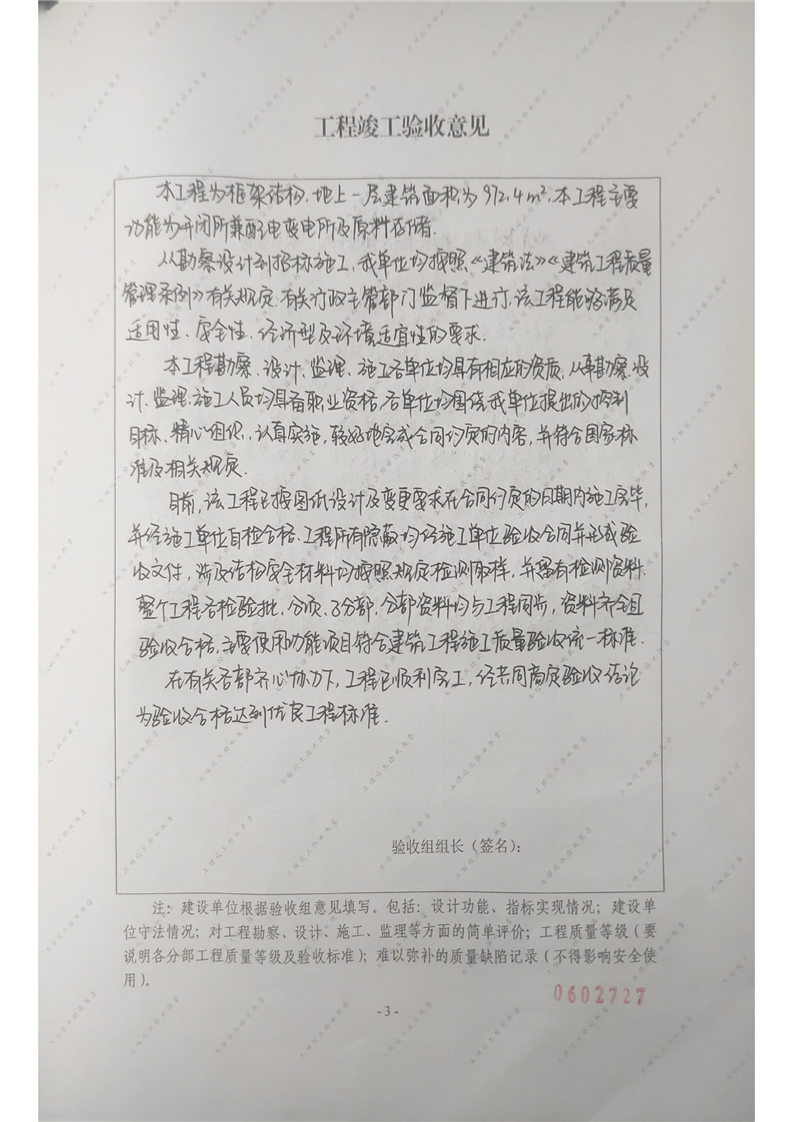 工程竣工验收意见
本工程为框架结构，地上一层建筑面积为972.4m²，本工程主要
功能为开闭所兼配电变电所及原料存储.
从勘察设计到招标施工，我单位均按照《建筑法》《建筑工程质量
管理条例》有关规定.有关行政主管部门监督下进行.该工程能够满足
适用性、安全性、经济型及环境适宜性的要求.
本工程勘察、设计、监理、施工各单位均具有相应的资质，从事勘察、设
计、监理、施工人员均具备职业资格，各单位均围绕我单位提出的控制
目标、精心组织，认真实施，较好地完成合同约定的内容，并符合国家标
准及相关规定.
目前，该工程已按图纸设计及变更要求在合同约定的日期内施工完毕，
并经施工单位自检合格.工程所有隐蔽均经施工单位验收合同并形成验
收文件，涉及结构安全材料均按照规定检测取样，并留有检测资料.
整个工程各检验批、分项、子分部、分部资料均与工程同步，资料齐全且
验收合格，主要使用功能项目符合建筑工程施工质量验收统一标准.
在有关各部齐心协力下，工程已顺利完工，经共同商定验收结论
为验收合格达到优良工程标准.
验收组组长（签名）：
注：建设单位根据验收组意见填写。包括：设计功能、指标实现情况；建设单
位守法情况；对工程勘察、设计、施工、监理等方面的简单评价；工程质量等级（要
说明各分部工程质量等级及验收标准）；难以弥补的质量缺陷记录（不得影响安全使
用）。
0602727
- 3 -